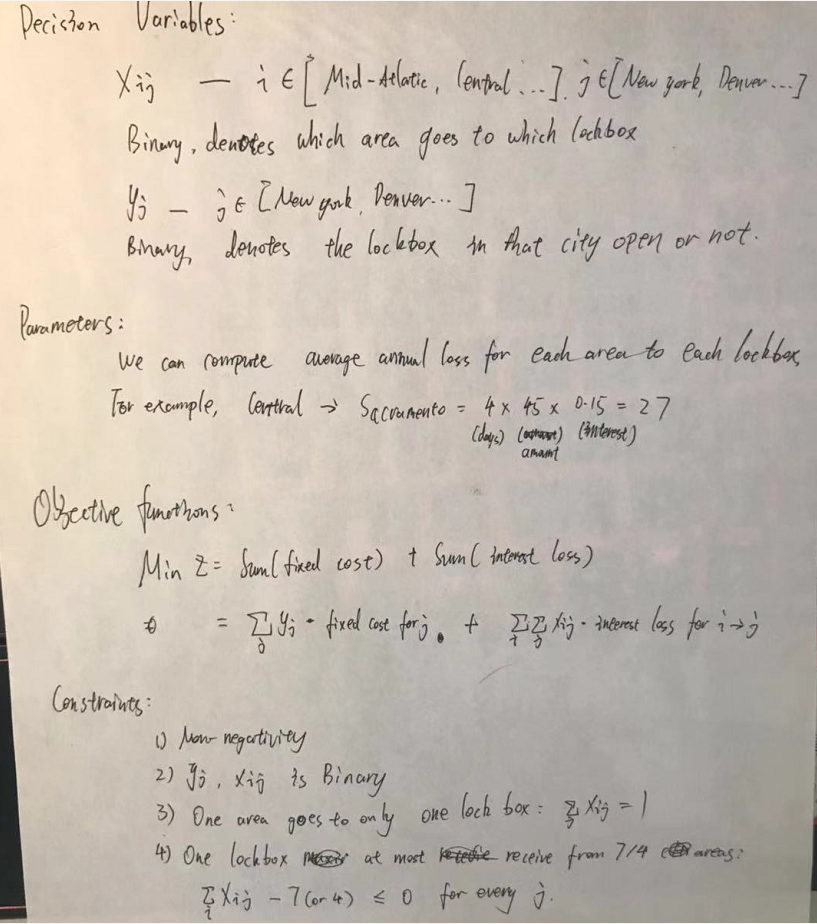 Decision Variables:
Xij — i ∈ [Mid-Atlatic, Central ...], j ∈ [New york, Denver...]
Binary, denotes which area goes to which lockbox
yj — j ∈ [New york, Denver...]
Binary, denotes the lockbox in that city open or not.
Parameters:
We can compute average annual loss for each area to each lockbox,
For example, Central → Sacramento = 4 × 45 × 0.15 = 27
(days) (interest)
amount
Objective functions:
Min Z = Sum(fixed cost) + Sum(interest loss)
= Σj yj · fixed cost for j. + Σi Σj xij · interest loss for i→j
Constraints:
1) Non negativity
2) yj, xij is Binary
3) One area goes to only one lock box: Σj xij = 1
4) One lockbox at most receive from 7/4 areas:
Σi Xij - 7(or 4) ≤ 0 for every j.